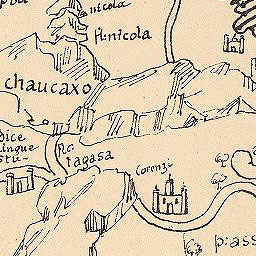 nicola
fl:nicola
chaucaxo
dice
ingue
stu-
ragasa
Corenzi
p:ass